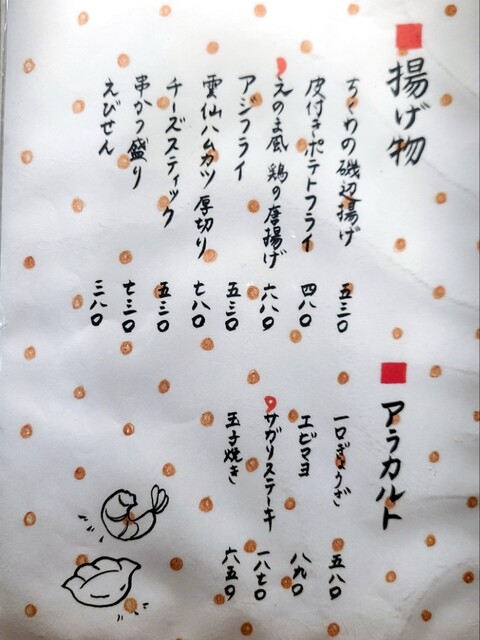 揚げ物
ちくわの磯辺揚げ 五三〇
皮付きポテトフライ 四八〇
えのま風 鶏の唐揚げ 六八〇
アジフライ 五三〇
雲仙ハムカツ 厚切り 七八〇
チーズスティック 五三〇
串かつ盛り 七三〇
えびせん 三八〇
アラカルト
一口ぎょうざ 五八〇
エビマヨ 八九〇
サガリステーキ 一八七〇
玉子焼き 六五〇